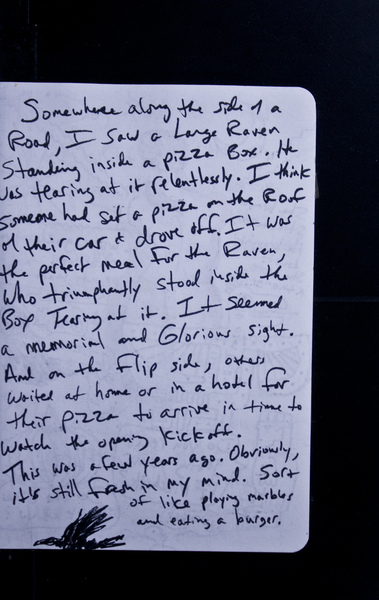 Somewhere along the side of a
Road, I saw a Large Raven
Standing inside a pizza Box. He
was tearing at it relentlessly. I think
someone had set a pizza on the Roof
of their car & drove off. It was
the perfect meal for the Raven,
who triumphantly stood inside the
Box Tearing at it. It seemed
a memorial and Glorious sight.
And on the flip side, others
waited at home or in a hotel for
their pizza to arrive in time to
watch the opening kickoff.
This was a few years ago. Obviously,
it's still fresh in my mind. Sort
of like playing marbles
and eating a burger.